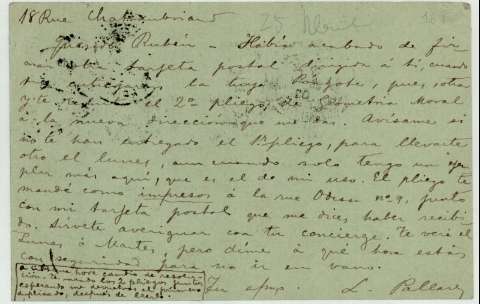 18 Rue Chateaubriand
25 Abril
Querido Rubén - Había acabado de fir
mar una tarjeta postal dirigida á tí, cuando
la tuya
el 2º pliego de Geometria Moral
á la nueva dirección que me das. Avísame si
no te han entregado el 1r pliego, para llevarte
otro el lunes, aun cuando solo tengo un ejem
plar más aquí, que es el de mi uso. El pliego te
mandé como impresos á la rue Odessa nº 9, junto
con mi tarjeta postal que me dices haber recibi
do. Sírvete averiguar con tu concierge. Te veré el
Lunes ó Martes, pero dime á qué hora estás
con seguridad para no ir en vano.
Tu afmo.
última hora cambio de resolu
ción. Te mando los 2 pliegos juntos
esperando me devuelvas el primero
duplicado, después de